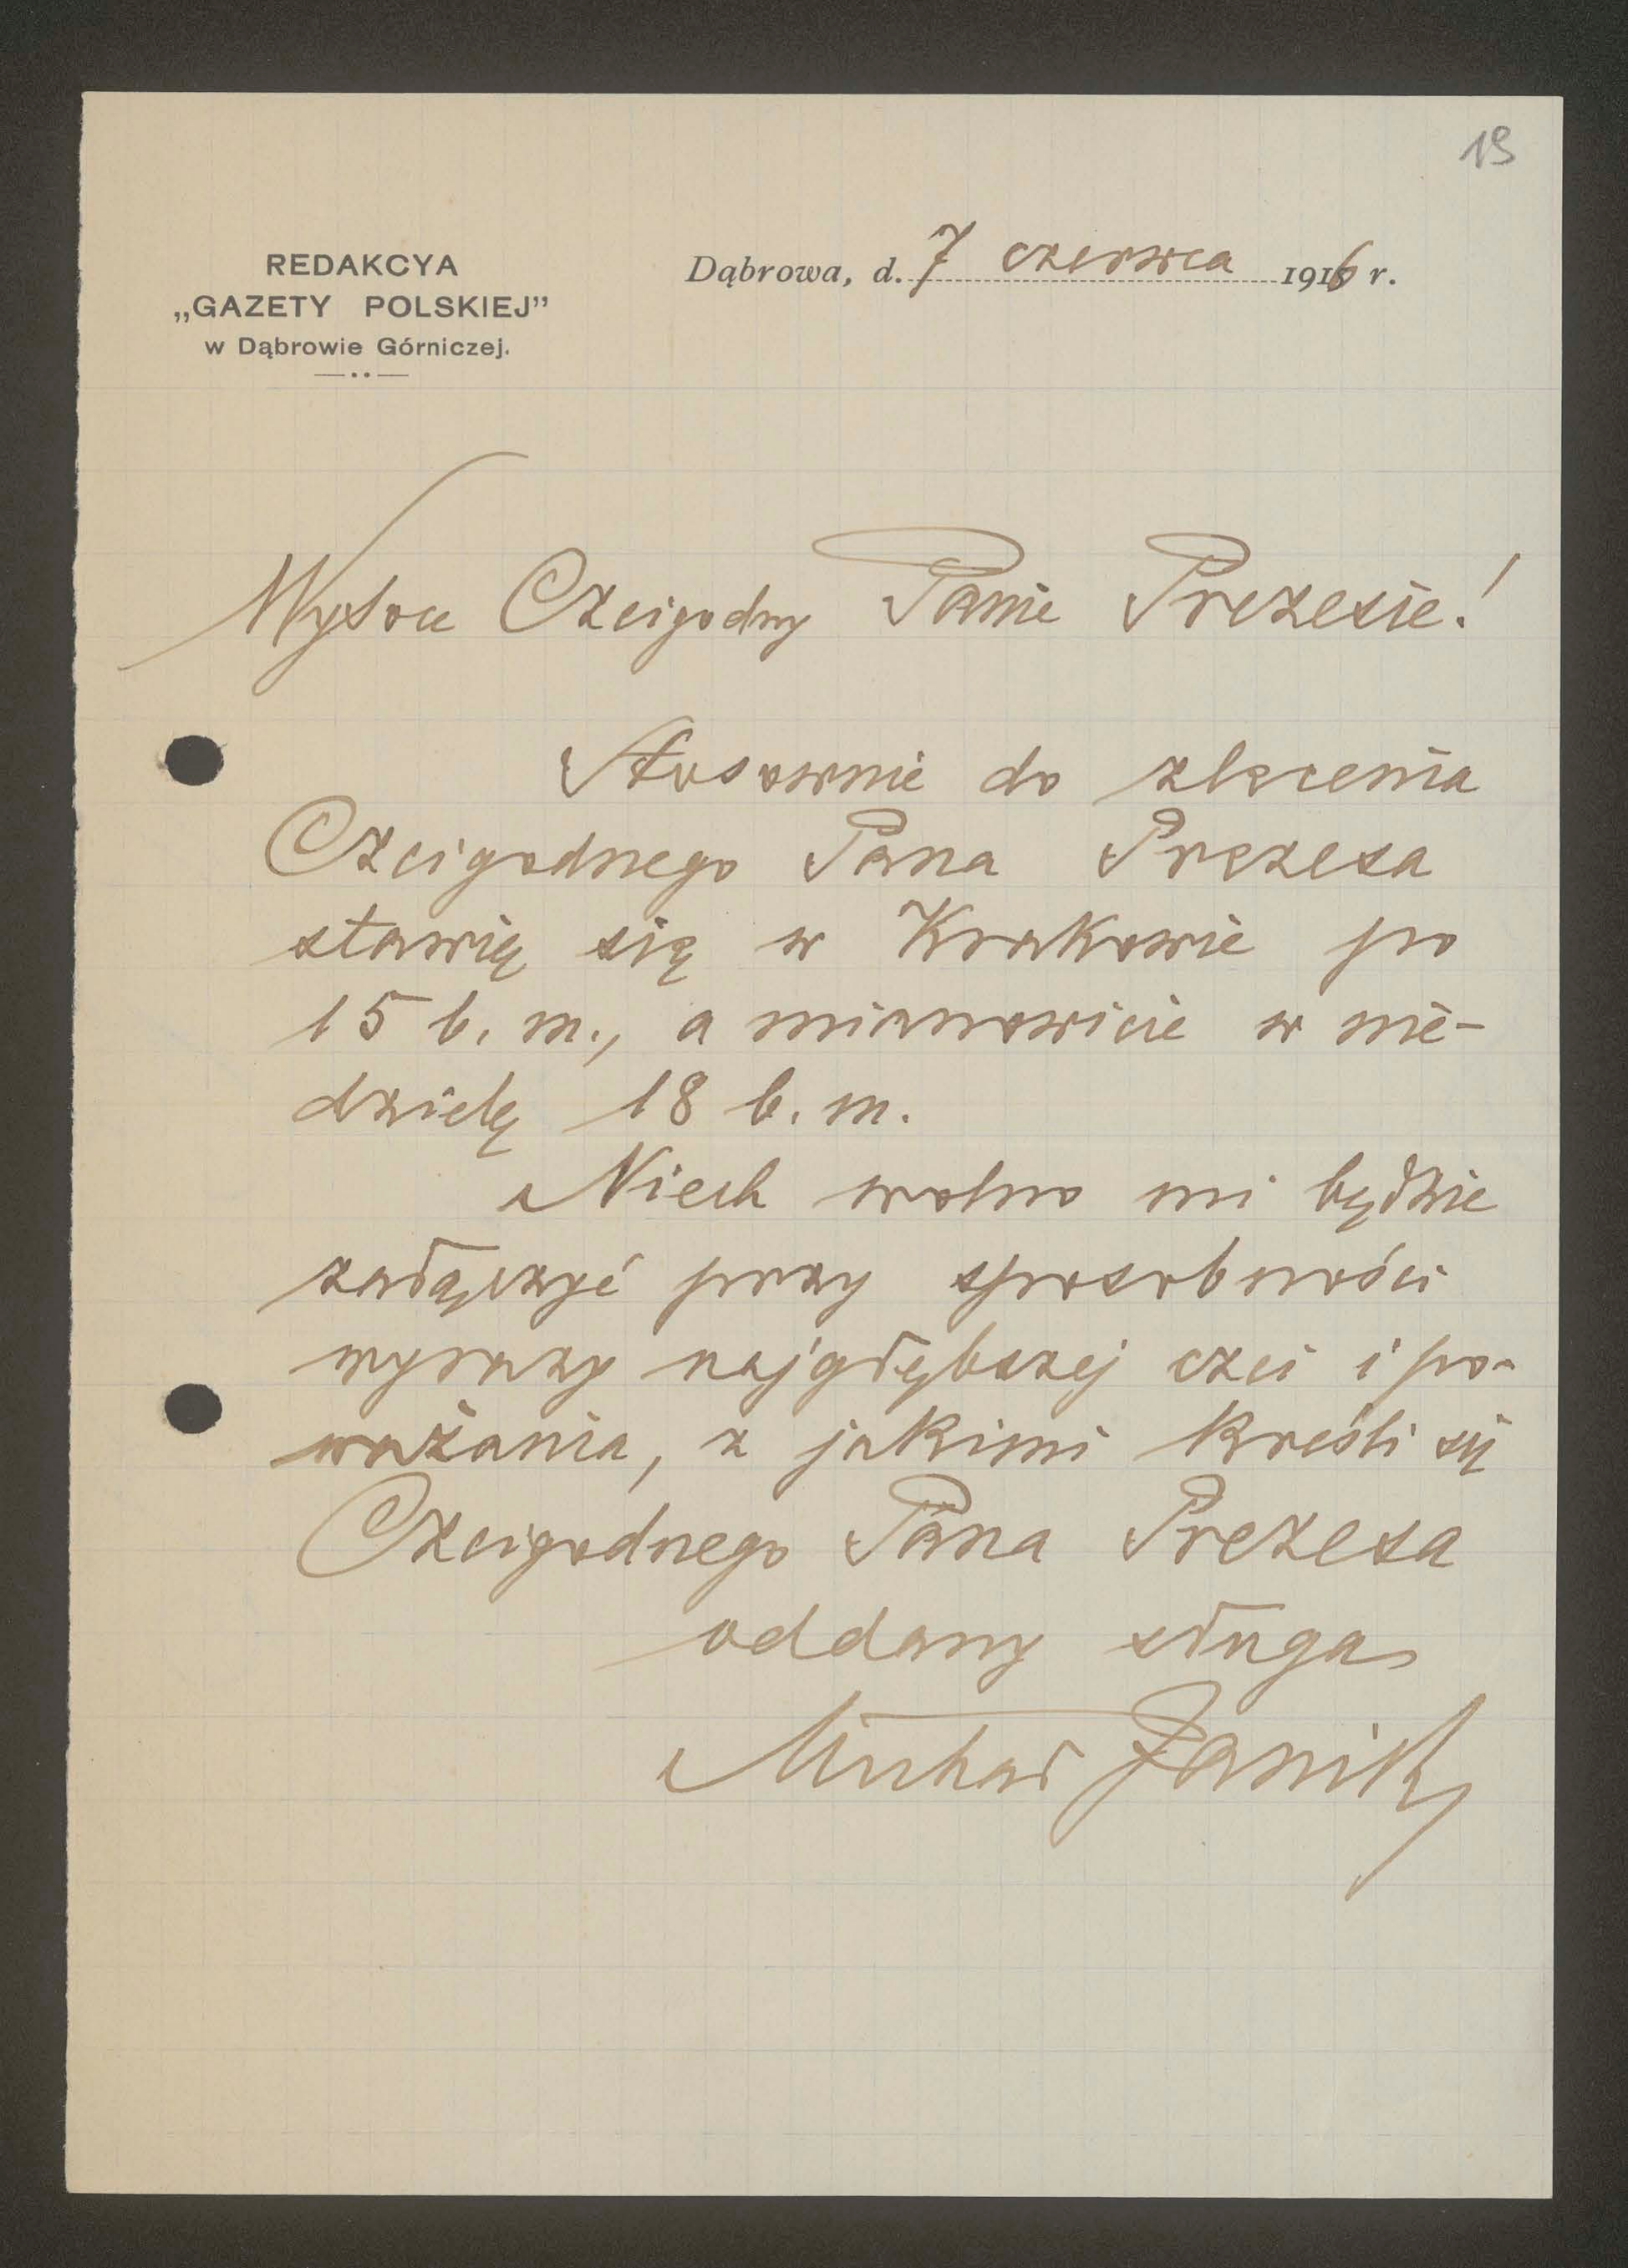 19
REDAKCYA
„GAZETY POLSKIEJ”
w Dąbrowie Górniczej.
Dąbrowa, d. 7 czerwca 1916 r.
Wysoce Czcigodny Panie Prezesie!
Stosownie do zlecenia
Czcigodnego Pana Prezesa
stawię się w Krakowie po
15 b. m., a mianowicie w nie-
dzielę 18 b. m.
Niech wolno mi będzie
załączyć przy sposobności
wyrazy najgłębszej czci i po-
ważania, z jakimi kreśli się
Czcigodnego Pana Prezesa
oddany sługa
Michał Janik